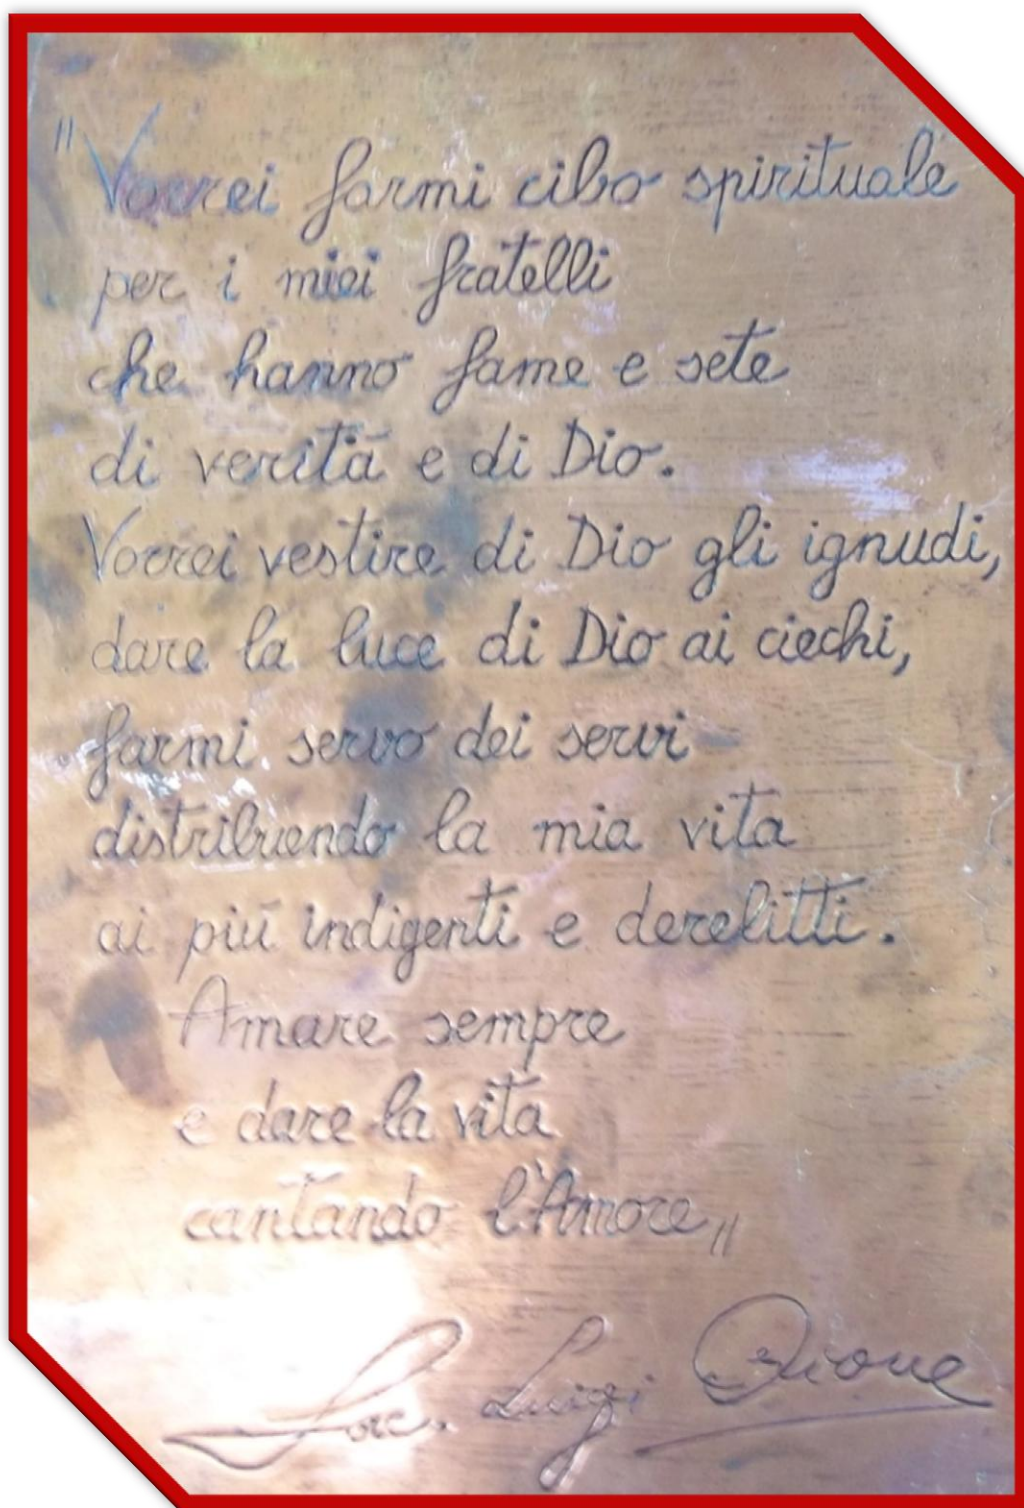 "Vorrei farmi cibo spirituale
per i miei fratelli
che hanno fame e sete
di verità e di Dio.
Vorrei vestire di Dio gli ignudi,
dare la luce di Dio ai ciechi,
farmi servo dei servi
distribuendo la mia vita
ai più indigenti e derelitti.
Amare sempre
e dare la vita
cantando l'Amore"
Sac. Luigi Orione